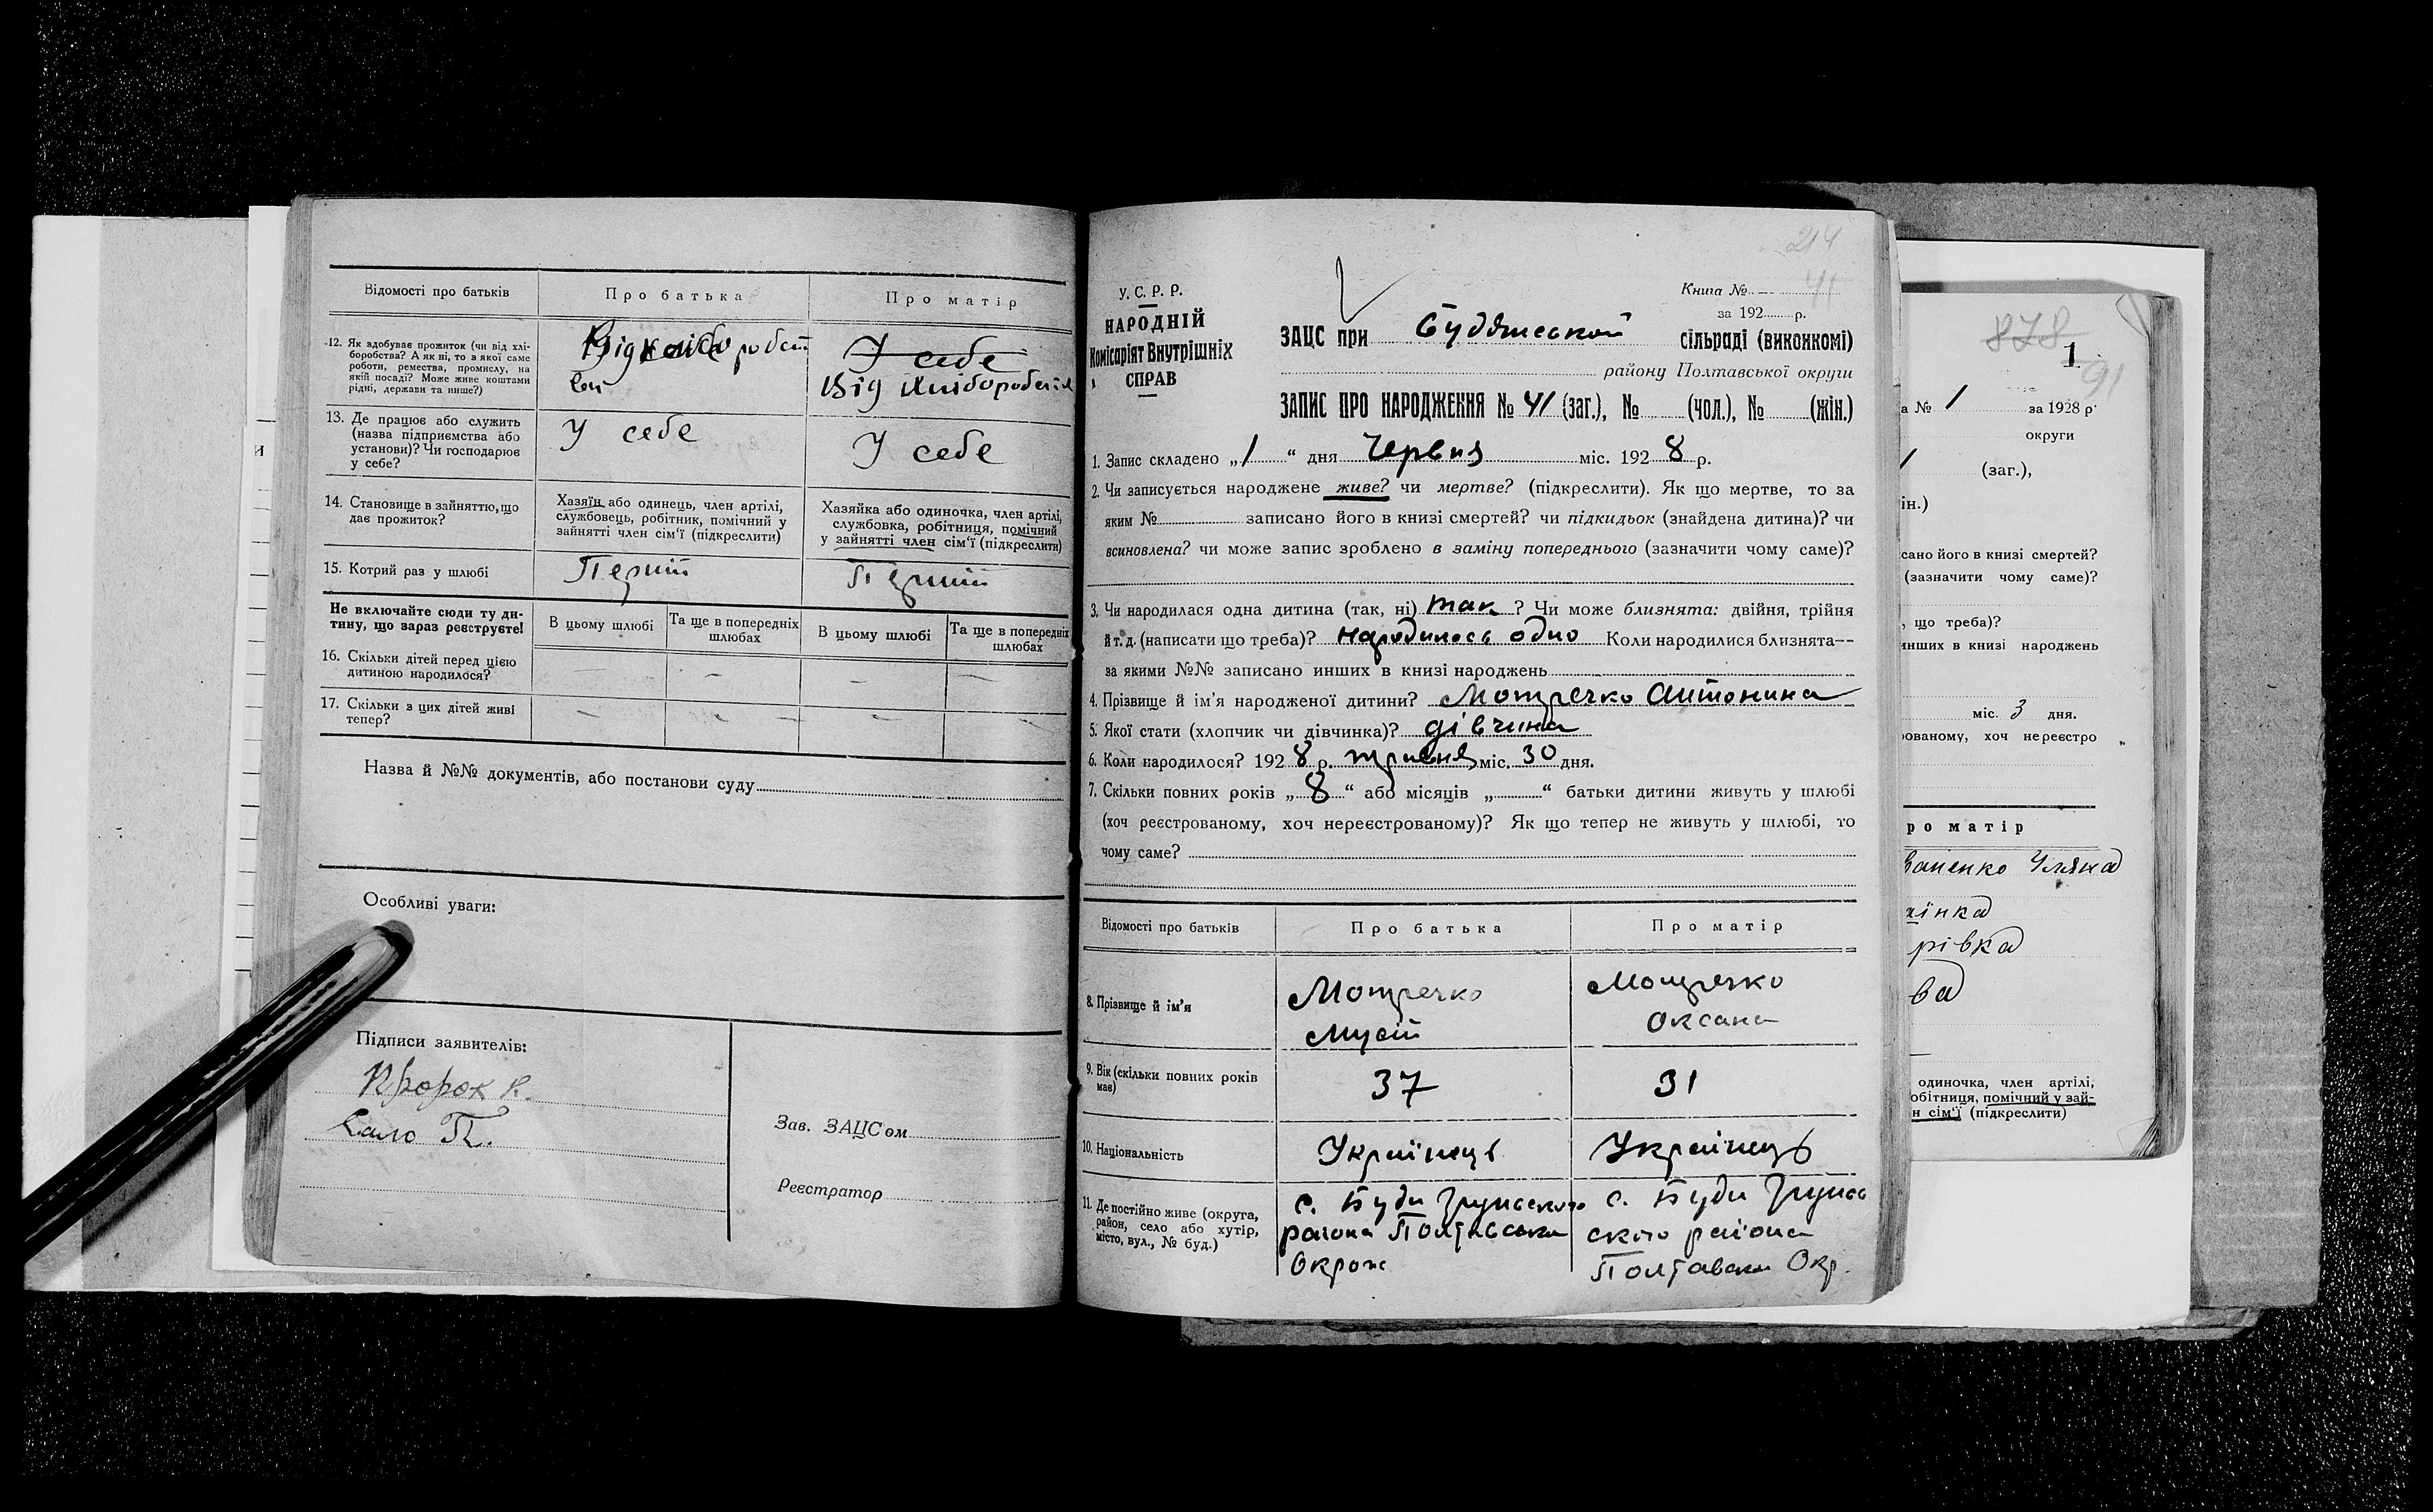 Відомості про батьків
Про батька
Про матір
12. Як здобуває прожиток (чи від хлі-
боробства? А як ні, то з якої саме
роботи, ремества, промислу, на
якій посаді? Може живе коштами
рідні, держави та инше?)
У себе
Від хлібороб
13. Де працює або служить
(назва підприємства або
установи)? Чи господарює
у себе?
У себе
У себе
14. Становище в зайняттю, що
дає прожиток?
Хазяїн або одинець, член артілі,
службовець, робітник, помічний у
зайнятті член сім'ї (підкреслити)
Хазяйка або одиночка, член артілі,
службовка, робітниця, помічний
у зайнятті член сім'ї (підкреслити)
15. Котрий раз у шлюбі
Перший
Перший
Не включайте сюди ту ди-
тину, що зараз реєструєте!
В цьому шлюбі
Та ще в попередніх
шлюбах
В цьому шлюбі
Та ще в попередніх
шлюбах
16. Скільки дітей перед цією
дитиною народилося?
17. Скільки з цих дітей живі
тепер?
Назва й №№ документів, або постанови суду
Особливі уваги:
Підписи заявителів:
Сало П.
Зав. ЗАЦС'ом
Реєстратор
214
41
У. С. Р. Р.
НАРОДНІЙ
Комісаріят Внутрішніх
СПРАВ
Книга №
за 192 р.
ЗАЦС при Будянській сільраді (виконкомі)
району Полтавської округи
ЗАПИС ПРО НАРОДЖЕННЯ № 41 (заг.), № (чол.), № (жін.)
1. Запис складено „1“ дня Червня міс. 1928 р.
2. Чи записується народжене живе? чи мертве? (підкреслити). Як що мертве, то за
яким № записано його в книзі смертей? чи підкидьок (знайдена дитина)? чи
всиновлена? чи може запис зроблено в заміну попереднього (зазначити чому саме)?
3. Чи народилася одна дитина (так, ні) так? Чи може близнята: двійня, трійня
й т. д. (написати що треба)? народилось одно Коли народилися близнята—
за якими №№ записано инших в книзі народжень
4. Прізвище й ім'я народженої дитини? Мотречко Антонина
5. Якої стати (хлопчик чи дівчинка)? дівчина
6. Коли народилося? 1928 р. травня міс. 30 дня.
7. Скільки повних років „8“ або місяців „ “ батьки дитини живуть у шлюбі
(хоч реєстрованому, хоч нереєстрованому)? Як що тепер не живуть у шлюбі, то
чому саме?
Відомості про батьків
Про батька
Про матір
8. Прізвище й ім'я
Мотречко
Мусій
Мотречко
Оксана
9. Вік (скільки повних років
має)
37
31
10. Національність
Українець
Українець
11. Де постійно живе (округа,
район, село або хутір,
місто, вул., № буд.)
с. Буди Грунського
района Полтавськи
Окрож
с. Буди Грунсь
ского района
Полтавськи Окр.
878
1
91
а № 1 за 1928 р.
округи
(заг.),
ін.)
сано його в книзі смертей?
(зазначити чому саме)?
, що треба)?
инших в книзі народжень
міс. 3 дня.
ованому, хоч нереєстро
ро матір
ваненко Уляна
інка
рівка
ва
одиночка, член артілі,
обітниця, помічний у зай-
н сім'ї (підкреслити)